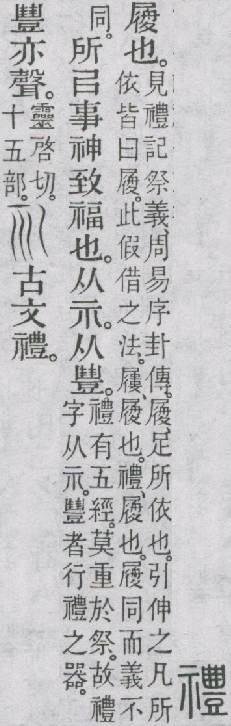 禮
履也。
見禮記祭義、周易序卦傳。履、足所依也。引伸之凡所
依皆曰履。此假借之法。屨、履也。禮、履也。履同而義不
同。
所㠯事神致福也。从示。从豐。
禮有五經。莫重於祭。故禮
字从示。豐者行禮之器。
豐亦聲。
靈啓切。
十五部。
古文禮。